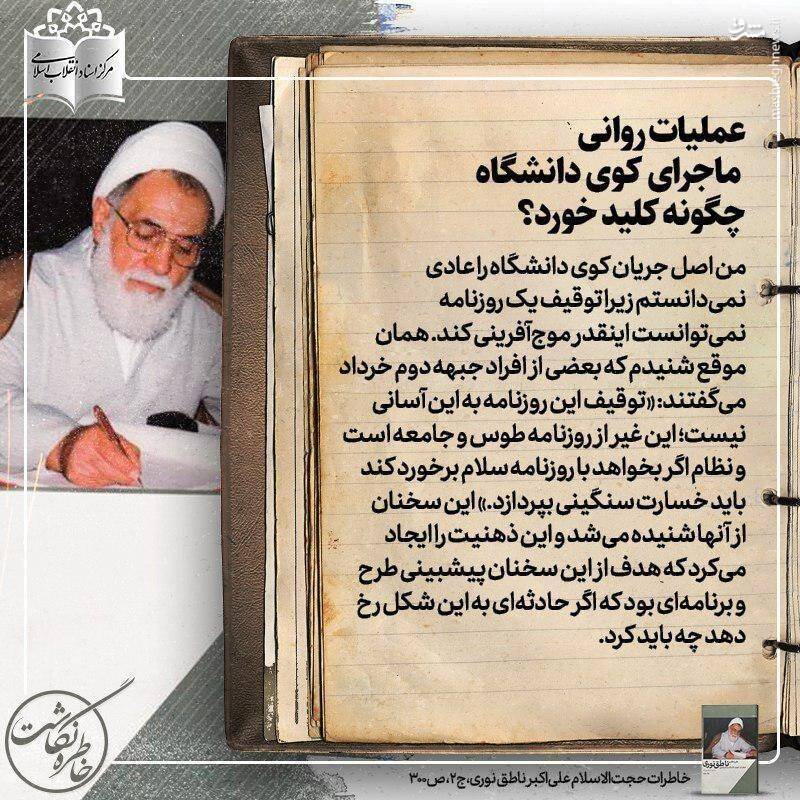 مرکز اسناد انقلاب اسلامی
مشرق
mashreghnews.ir
عملیات روانی
ماجرای کوی دانشگاه
چگونه کلید خورد؟
من اصل جریان کوی دانشگاه را عادی
نمی‌دانستم زیرا توقیف یک روزنامه
نمی‌توانست اینقدر موج‌آفرینی کند. همان
موقع شنیدم که بعضی از افراد جبهه دوم خرداد
می‌گفتند: «توقیف این روزنامه به این آسانی
نیست؛ این غیر از روزنامه طوس و جامعه است
و نظام اگر بخواهد با روزنامه سلام برخورد کند
باید خسارت سنگینی بپردازد.» این سخنان
از آنها شنیده می‌شد و این ذهنیت را ایجاد
می‌کرد که هدف از این سخنان پیشبینی طرح
و برنامه‌ای بود که اگر حادثه‌ای به این شکل رخ
دهد چه باید کرد.
خاطره نگاشت
ناطق نوری
خاطرات حجت‌الاسلام علی‌اکبر ناطق نوری، ج۲، ص۳۰۰